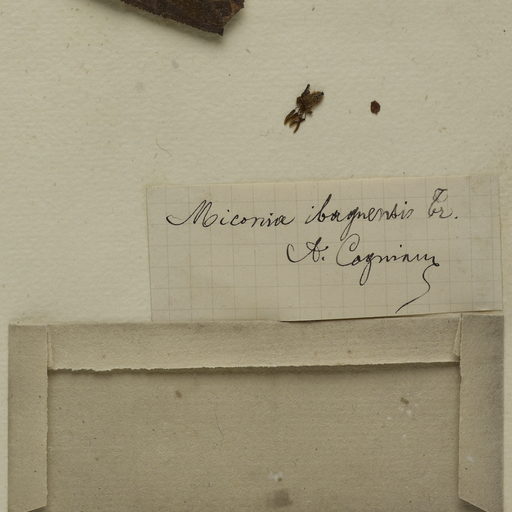 Miconia ibaguensis Tr.
A. Cogniaux